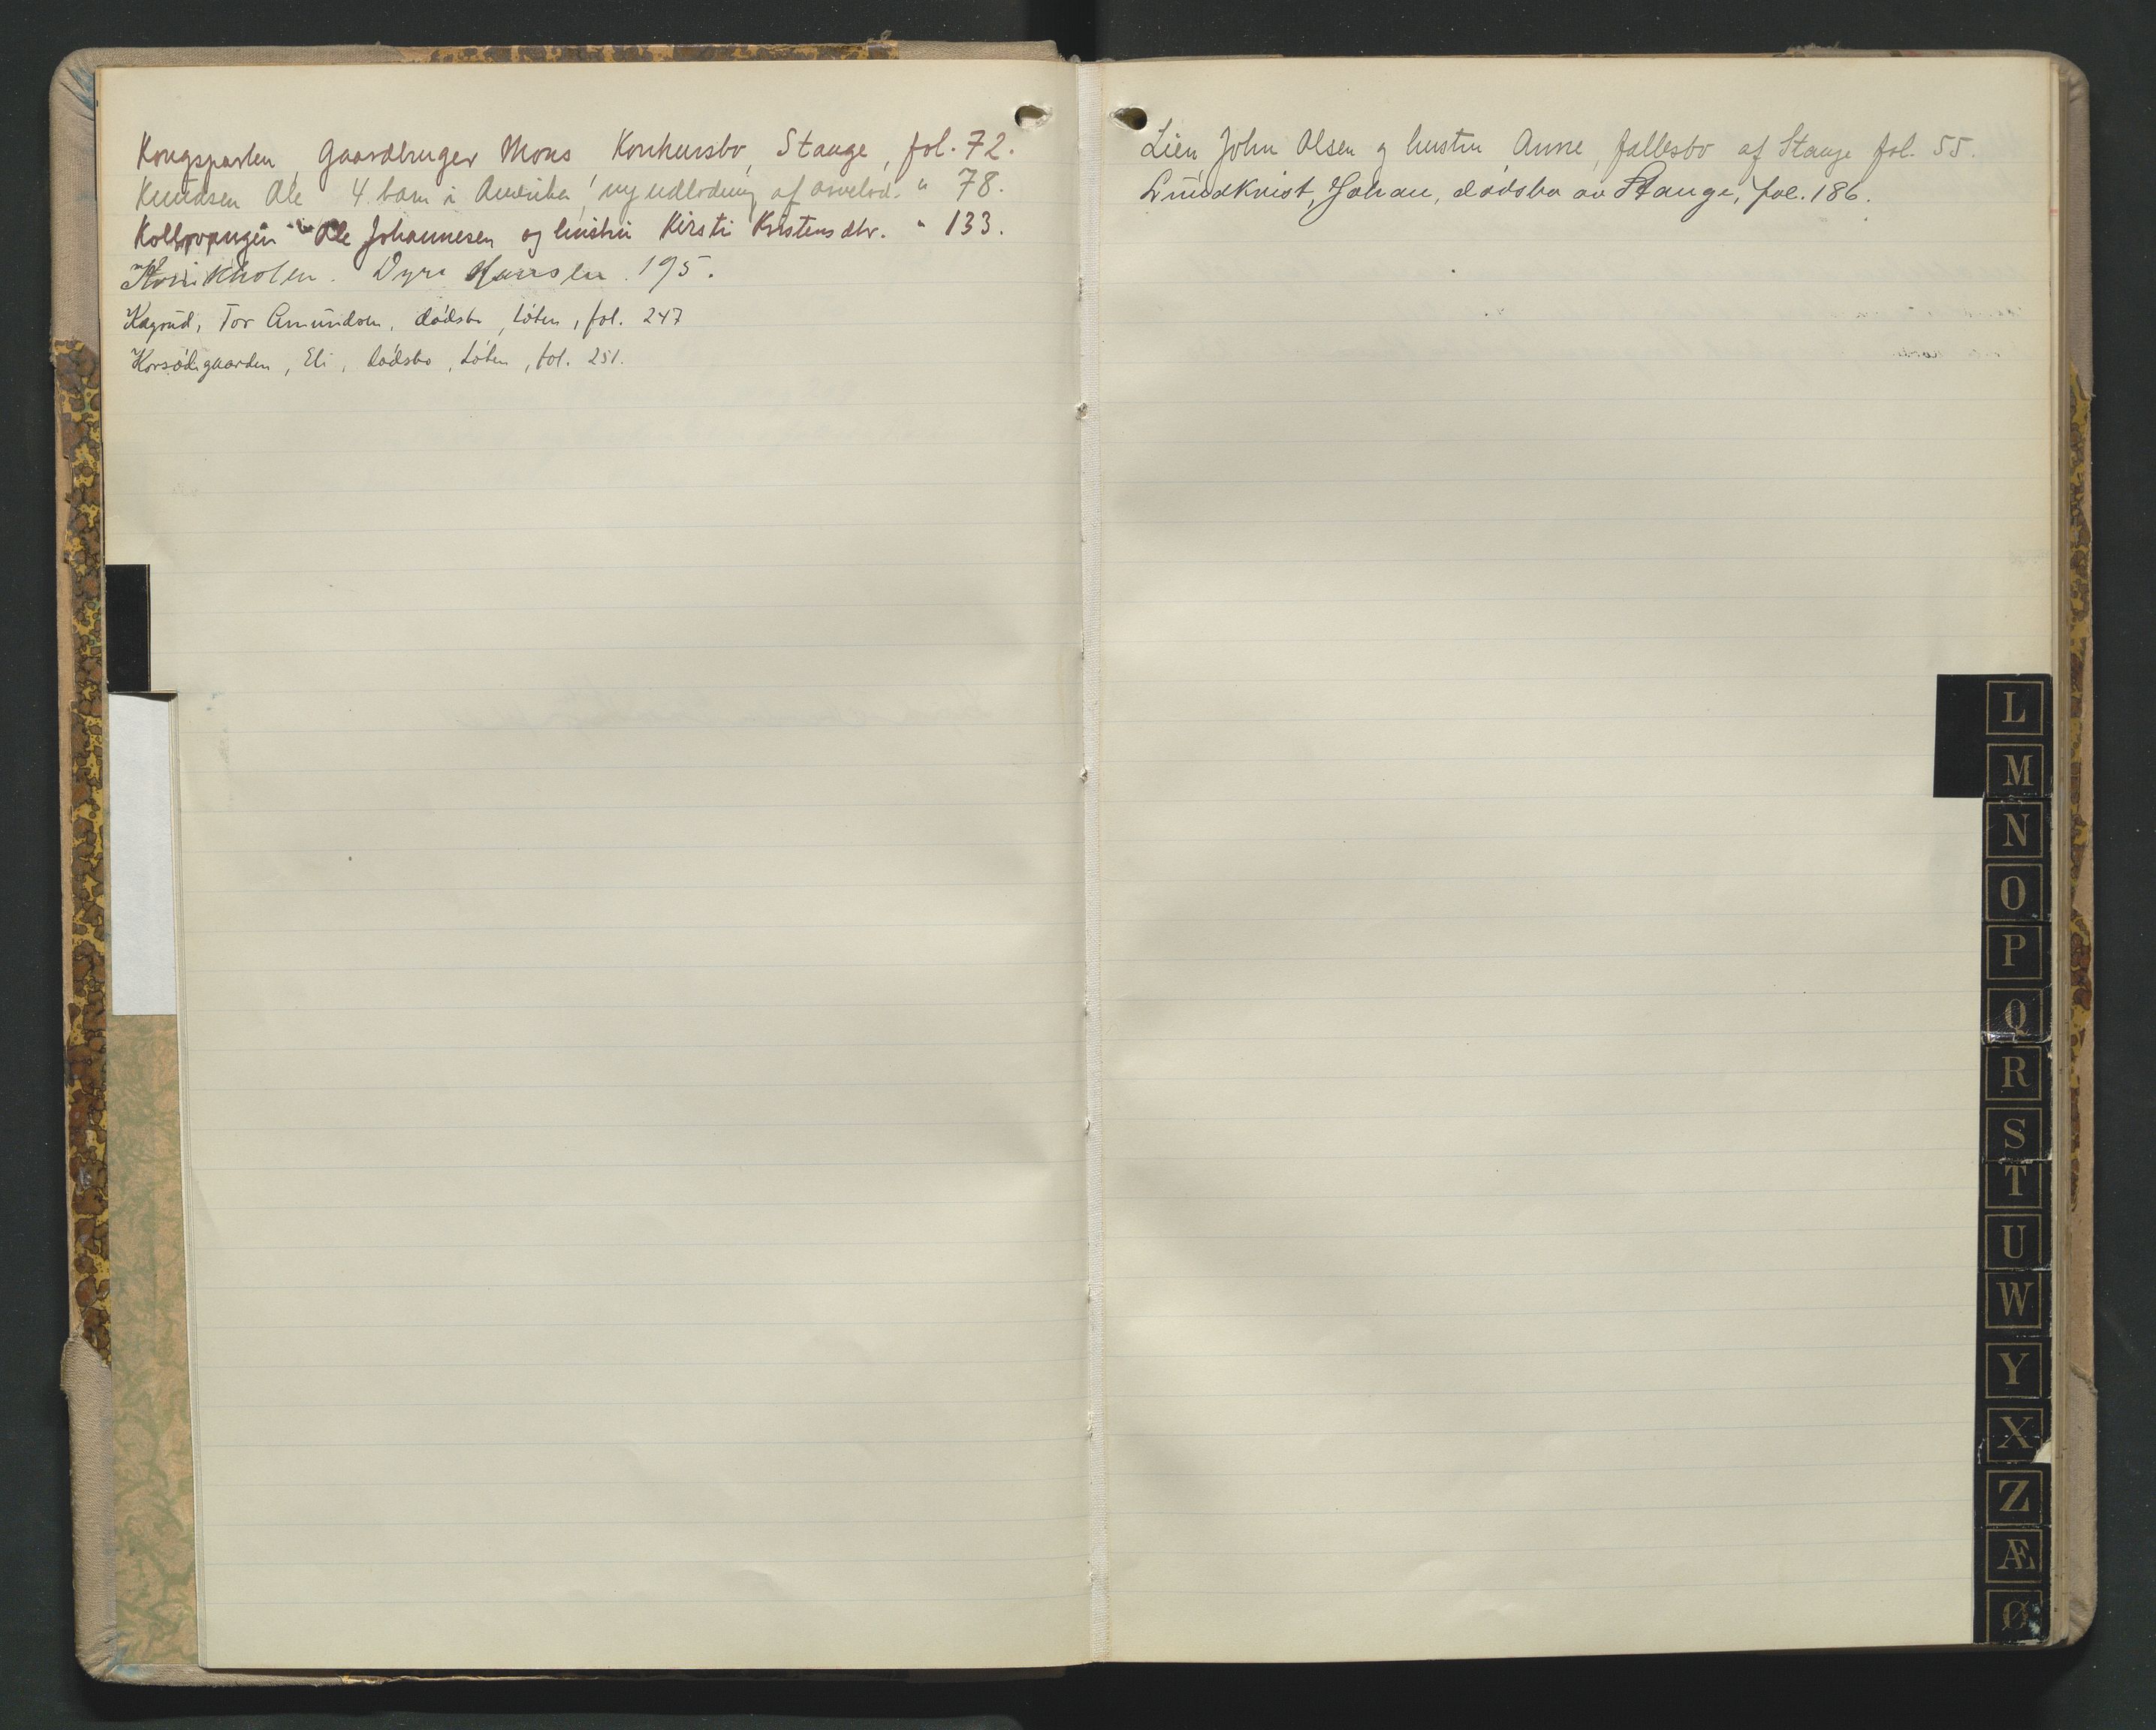 Kongsparten, Gaardbruger Mons Konkursbo, Stange, fol. 72.
Knudsen Ole 4 barn i Amerika, ny udlodning af arvelod. " 78.
Kolbrovangen Ole Johannesen og hustru Kirsti Kristensdtr. " 133.
Dyre Hanslu 195.
Kagrud, Tor Amundsen, dødsbo, Løten, fol. 247
Korsødegaarden, Eli, dødsbo, Løten, fol. 251.
Lien, John Olsen og hustru Anne, fællesbo af Stange fol. 55.
Lundkvist, Johan, dødsbo av Stange, fol. 186.
L
M
N
O
P
Q
R
S
T
U
W
Y
X
Z
Æ
Ø